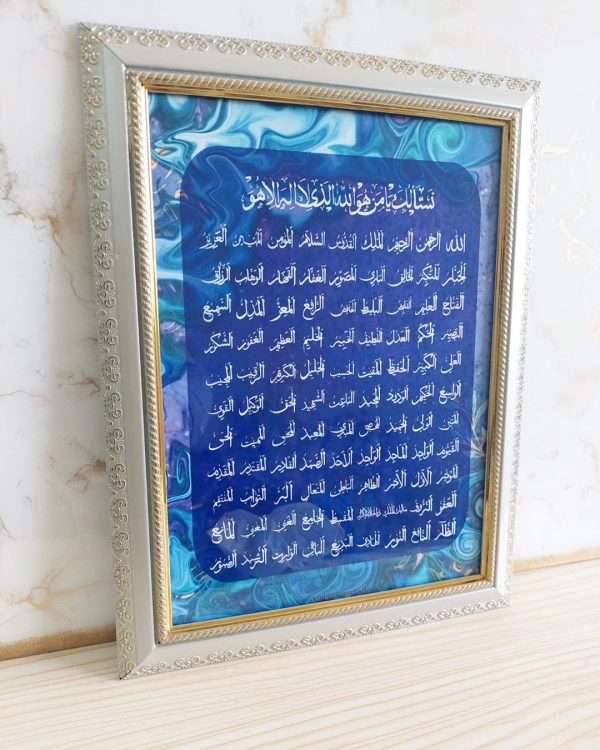 نسئلك يا من هو الله الذي لا إله إلا هو
الله الرحمن الرحيم الملك القدوس السلام المؤمن المهيمن العزيز
الجبار المتكبر الخالق البارئ المصور الغفار القهار الوهاب الرزاق
الفتاح العليم القابض الباسط الخافض الرافع المعز المذل السميع
البصير الحكم العدل اللطيف الخبير الحليم العظيم الغفور الشكور
العلي الكبير الحفيظ المقيت الحسيب الجليل الكريم الرقيب المجيب
الواسع الحكيم الودود المجيد الباعث الشهيد الحق الوكيل القوي
المتين الولي الحميد المحصي المبدئ المعيد المحيي المميت الحي
القيوم الواجد الماجد الواحد الأحد الصمد القادر المقتدر المقدم
المؤخر الأول الآخر الظاهر الباطن المتعال البر التواب المنتقم
العفو الرؤف مالك الملك ذو الجلال والإكرام المقسط الجامع الغني المغني المانع
الضار النافع النور الهادي البديع الباقي الوارث الرشيد الصبور